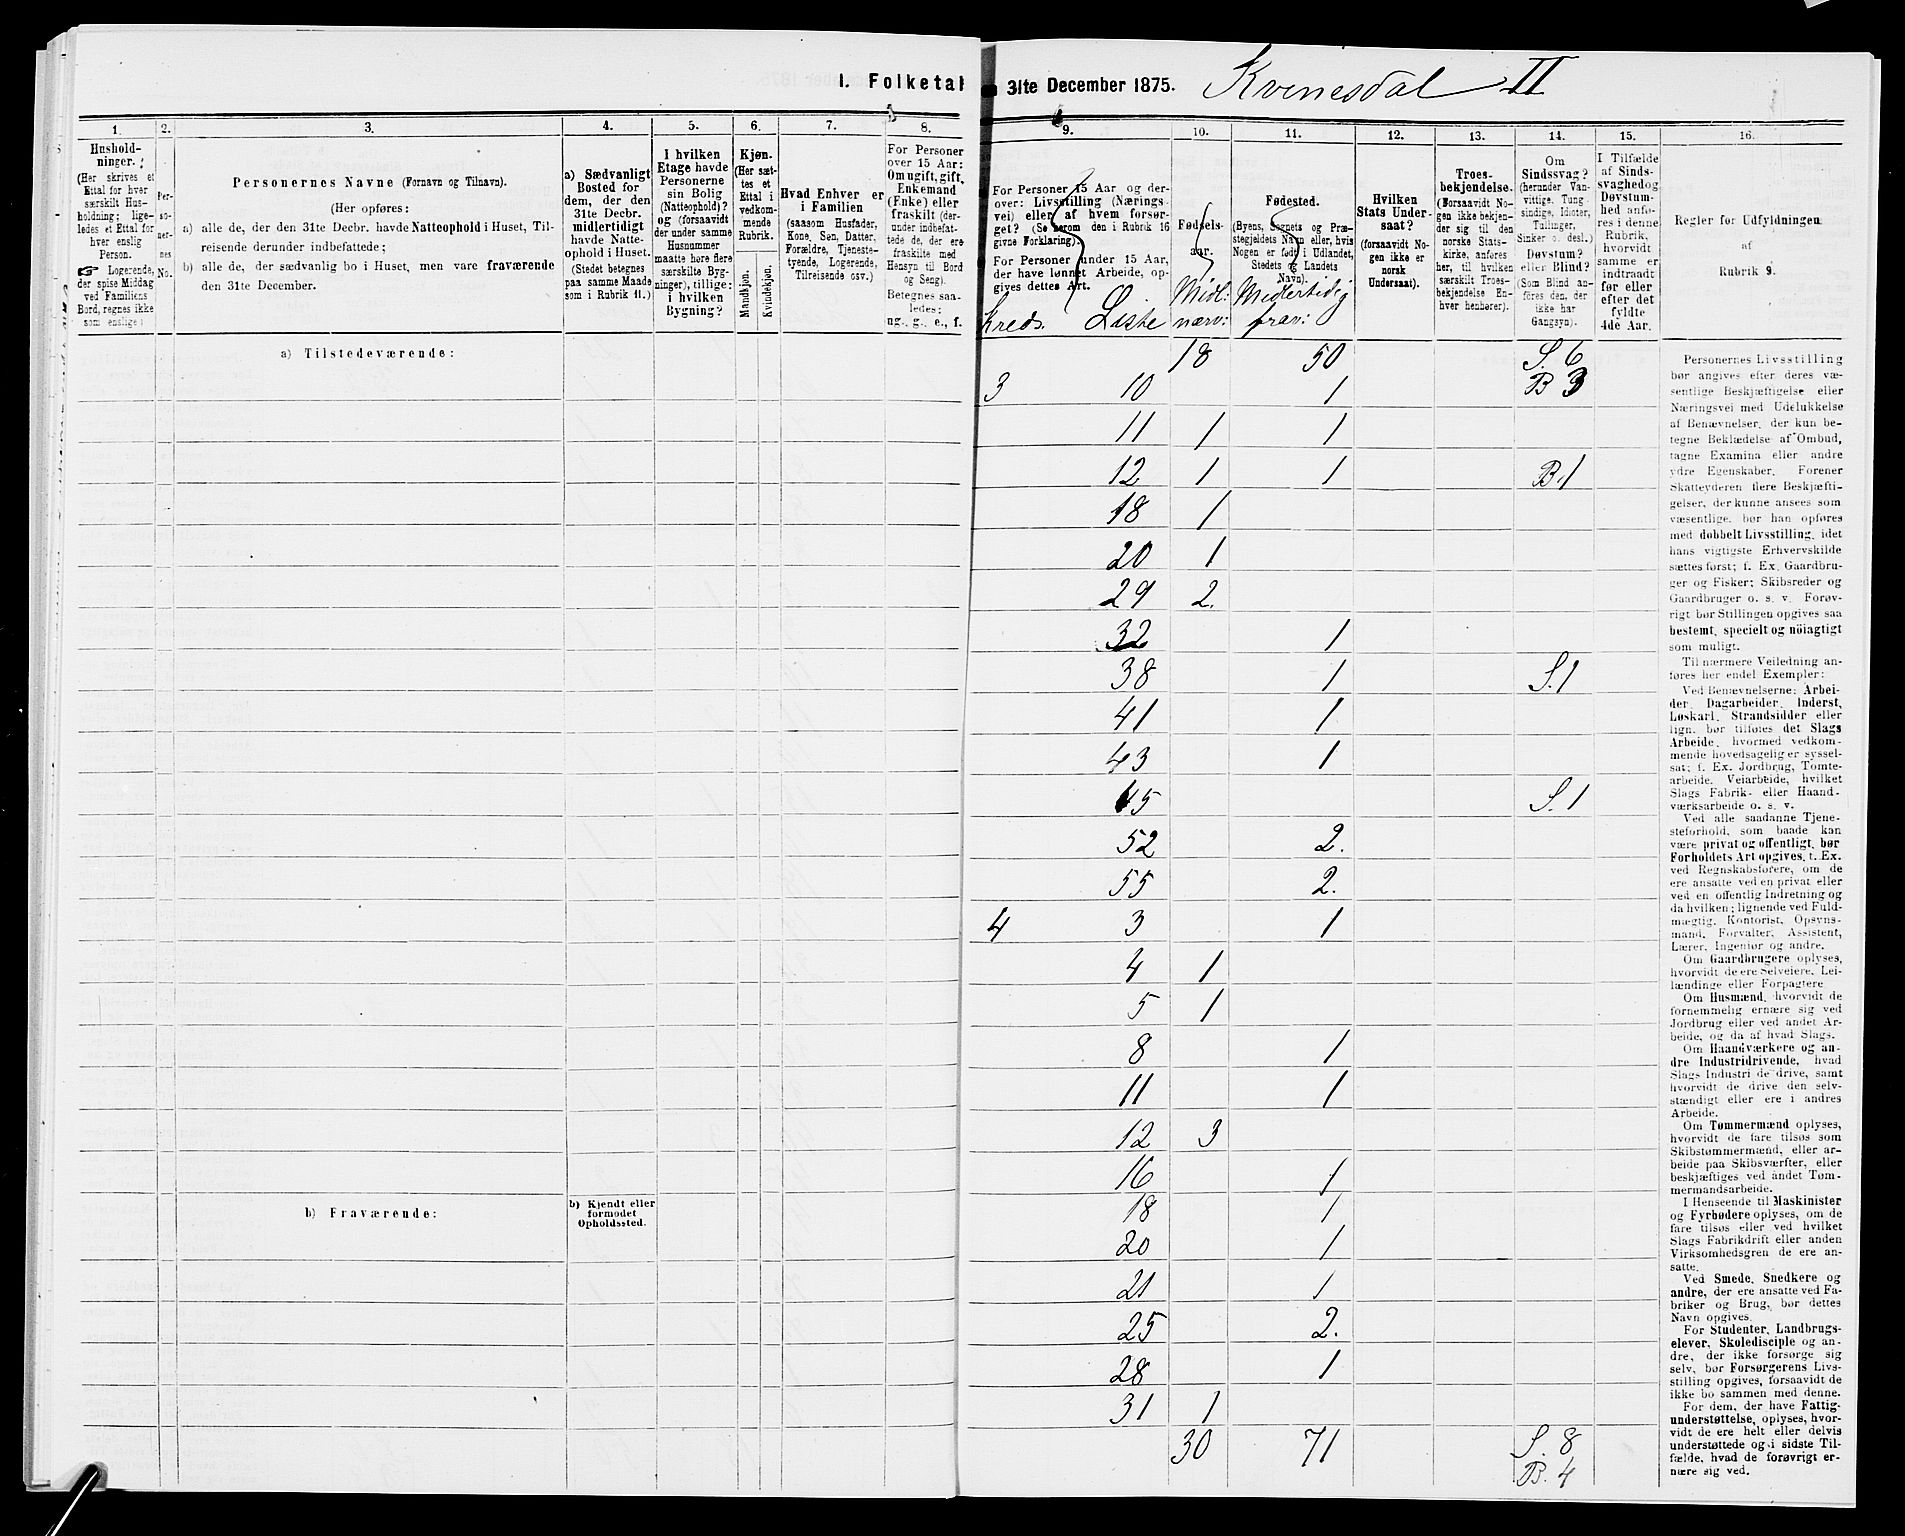 I. Folketal 31te December 1875. Kvinesdal II
1. 2. 3. 4. 5. 6. 7. 8. 9. 10. 11. 12. 13. 14. 15. 16.
Hushold-
ninger.
(Her skrives et
Ettal for hver
særskilt Hus-
holdning; lige-
ledes et Ettal for
hver enslig
Person.
☞ Logerende,
der spise Middag
ved Familiens
Bord, regnes ikke
som enslige)
Per-
so-
ner-
nes
No.
Personernes Navne (Fornavn og Tilnavn).
(Her opføres:
a) alle de, der den 31te Decbr. havde Natteophold i Huset, Til-
reisende derunder indbefattede;
b) alle de, der sædvanlig bo i Huset, men vare fraværende
den 31te December.
a) Sædvanligt
Bosted for
dem, der den
31te Decbr.
midlertidigt
havde Natte-
ophold i Huset.
(Stedet betegnes
paa samme Maade
som i Rubrik 11.)
I hvilken
Etage havde
Personerne
sin Bolig
(Natteophold)?
og (forsaavidt
der under samme
Husnummer
maatte høre flere
særskilte Byg-
ninger), tillige:
i hvilken
Bygning?
Kjøn.
(Her sæt-
tes et
Ettal i
vedkom-
mende
Rubrik.
Mandkjøn.
Kvindekjøn.
Hvad Enhver er
i Familien
(saasom Husfader,
Kone, Søn, Datter,
Forældre, Tjeneste-
tyende, Logerende,
Tilreisende osv.)
For Personer
over 15 Aar:
Om ugift, gift,
Enkemand
(Enke) eller
fraskilt (der-
under indbefat-
tede de, der ere
fraskilte med
Hensyn til Bord
og Seng).
Betegnes saa-
ledes:
ug., g., e., f.
For Personer 15 Aar og der-
over: Livsstilling (Nærings-
vei) eller af hvem forsør-
get? (Se herom den i Rubrik 16
givne Forklaring).
For Personer under 15 Aar,
der have lønnet Arbeide, op-
gives dettes Art.
Kreds. Liste
Fødsels-
aar.
Midl:
nærv:
Fødested.
(Byens, Sognets og Præ-
stegjeldets Navn eller, hvis
Nogen er født i Udlandet,
Stedets og Landets
Navn).
Midlertidig
frav:
Hvilken
Stats Under-
saat?
(forsaavidt No-
gen ikke er
norsk
Undersaat).
Troes-
bekjendelse.
(Forsaavidt No-
gen ikke bekjen-
der sig til den
norske Stats-
kirke, anføres
her, til hvilken
særskilt Troes-
bekjendelse En-
hver henhører).
Om
Sindssvag?
(herunder Van-
vittige, Tung-
sindige, Idioter,
Tullinger,
Sinker o. desl.)
Døvstum?
eller Blind?
(Som Blind an-
føres den, der
ikke har
Gangsyn).
I Tilfælde
af Sinds-
svaghed og
Døvstum-
hed anfø-
res i denne
Rubrik,
hvorvidt
samme er
indtraadt
før eller
efter det
fyldte
4de Aar.
Regler for Udfyldningen
af
Rubrik 9.
a) Tilstedeværende:
18 50 S. 6
3 10 1 B 3
11 1 1
12 1 1 B.1
18 1
20 1
29 2.
32 1
38 1 S.1
41 1
43 1
45 S.1
52 2.
55 2.
4 3 1
4 1
5 1
8 1
11 1
12 3
16 1
b) Fraværende:
b) Kjendt eller
formodet
Opholdssted.
18 1
20 1
21 1
25 2.
28 1
31 1
30 71 S. 8
B. 4
Personernes Livsstilling
bør angives efter deres væ-
sentlige Beskjæftigelse eller
Næringsvei med Udelukkelse
af Benævnelser, der kun be-
tegne Beklædelse af Ombud,
tagne Examina eller andre
ydre Egenskaber. Forener
Skatteyderen flere Beskjæfti-
gelser, der kunne ansees som
væsentlige, bør han opføres
med dobbelt Livsstilling, idet
hans vigtigste Erhvervskilde
sættes først; f. Ex. Gaardbru-
ger og Fisker; Skibsreder og
Gaardbruger o. s. v. Forøv-
rigt bør Stillingen opgives saa
bestemt, specielt og nöiagtigt
som muligt.
Til nærmere Veiledning an-
føres her endel Exempler:
Ved Benævnelserne: Arbei-
der, Dagarbeider, Inderst,
Løskarl, Strandsidder eller
lign. bør tilføies det Slags
Arbeide, hvormed vedkom-
mende hovedsagelig er syssel-
sat; f. Ex. Jordbrug, Tomte-
arbeide, Veiarbeide, hvilket
Slags Fabrik- eller Haand-
værksarbeide o. s. v.
Ved alle saadanne Tjene-
steforhold, som baade kan
være privat og offentligt, bør
Forholdets Art opgives, t. Ex.
ved Regnskabsførere, om de
ere ansatte ved en privat eller
ved en offentlig Indretning og
da hvilken; lignende ved Fuld-
mægtig, Kontorist, Opsyns-
mand, Forvalter, Assistent,
Lærer, Ingeniør og andre.
Om Gaardbrugere oplyses,
hvorvidt de ere Selveiere, Lei-
lændinge eller Forpagtere
Om Husmænd, hvorvidt de
fornemmelig ernære sig ved
Jordbrug eller ved andet Ar-
beide, og da af hvad Slags.
Om Haandværkere og an-
dre Industridrivende, hvad
Slags Industri de drive, samt
hvorvidt de drive den selv-
stændigt eller ere i andres
Arbeide.
Om Tømmermænd oplyses,
hvorvidt de fare tilsøs som
Skibstømmermænd, eller ar-
beide paa Skibsværfter, eller
beskjæftiges ved andet Tøm-
mermandsarbeide.
I Henseende til Maskinister
og Fyrbødere oplyses, om de
fare tilsøs eller ved hvilket
Slags Fabrikdrift eller anden
Virksomhedsgren de ere an-
satte.
Ved Smede, Snedkere og
andre, der ere ansatte ved Fa-
briker og Brug, bør dettes
Navn opgives.
For Studenter, Landbrugs-
elever, Skoledisciple og an-
dre, der ikke forsørge sig
selv, bør Forsørgerens Livs-
stilling opgives, forsaavidt de
ikke bo sammen med denne.
For dem, der have Fattig-
understøttelse, oplyses, hvor-
vidt de ere helt eller delvis
understøttede og i sidste Til-
fælde, hvad de forøvrigt er-
nære sig ved.